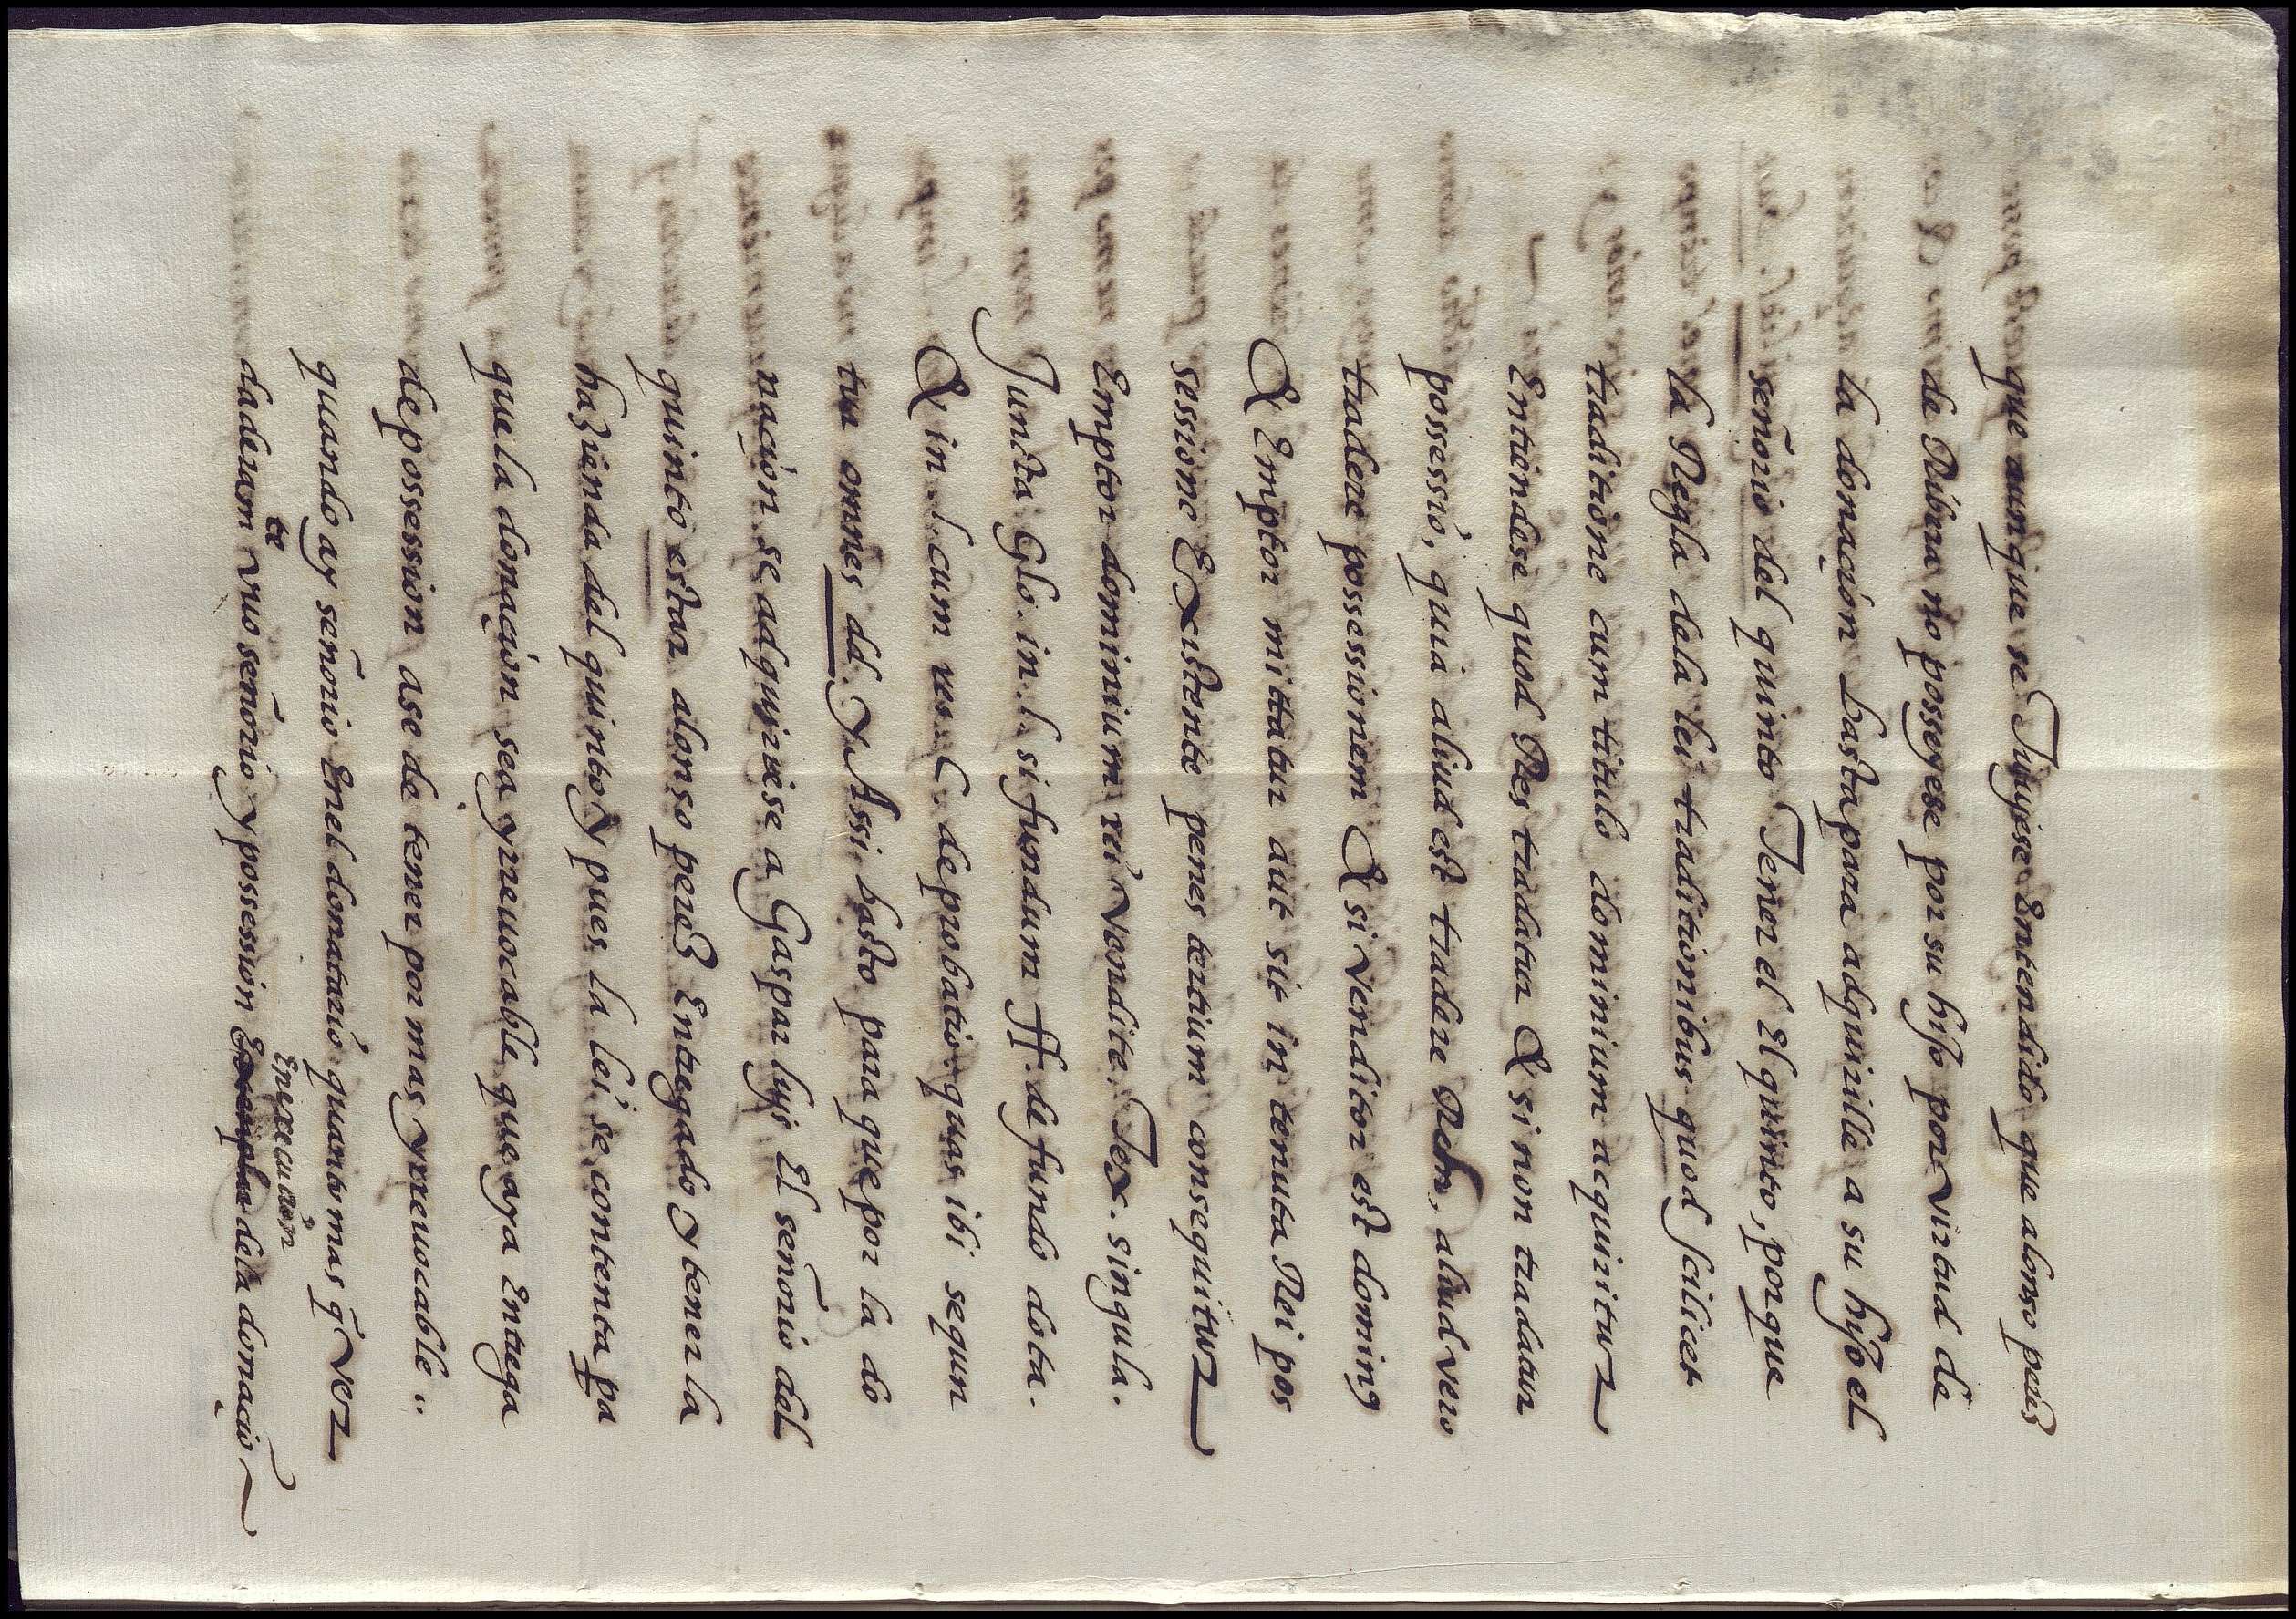 que aunque se Tuyiese Entendido que alonso perez
de Ribera no posseyese por su hijo por Virtud de
la donaçion basta para adquirille a su hijo el
señorio del quinto Tener el El quinto, porque
la Regla dela lei traditionibus quod scilicet
traditione cum titulo dominium acquiritur
Entiendese quod Res tradatur & si non tradatur
possessio, quia aliud est tradere Rem, aliud vero
tradere possessionem & si Venditor est doming
& Emptor mittatur aut sit in tenuta Rei pos
sessione Existente penes tertium consequitur
Emptor dominium rei Vendite. Tex. singula.
Juncta Glo. in. l. si fundum ff. de fundo dota.
& in. l. cum res. C. de probatio. quas ibi sequn
tur omnes dd. Y Assi basto para que por la do
naçion se adquiriese a Gaspar luys El señorio del
quinto estar alonso perez Entregado Y tener la
hazienda del quinto Y pues la lei se contenta pa
que la donaçion sea yrreuocable que aya Entrega
de possession ase de tener por mas yrreuocable ..
quando ay señorio Enel donatario quanto mas q̃ Ver
te Enexecucion
daderam vuo señorio y possession dela donaçiõ